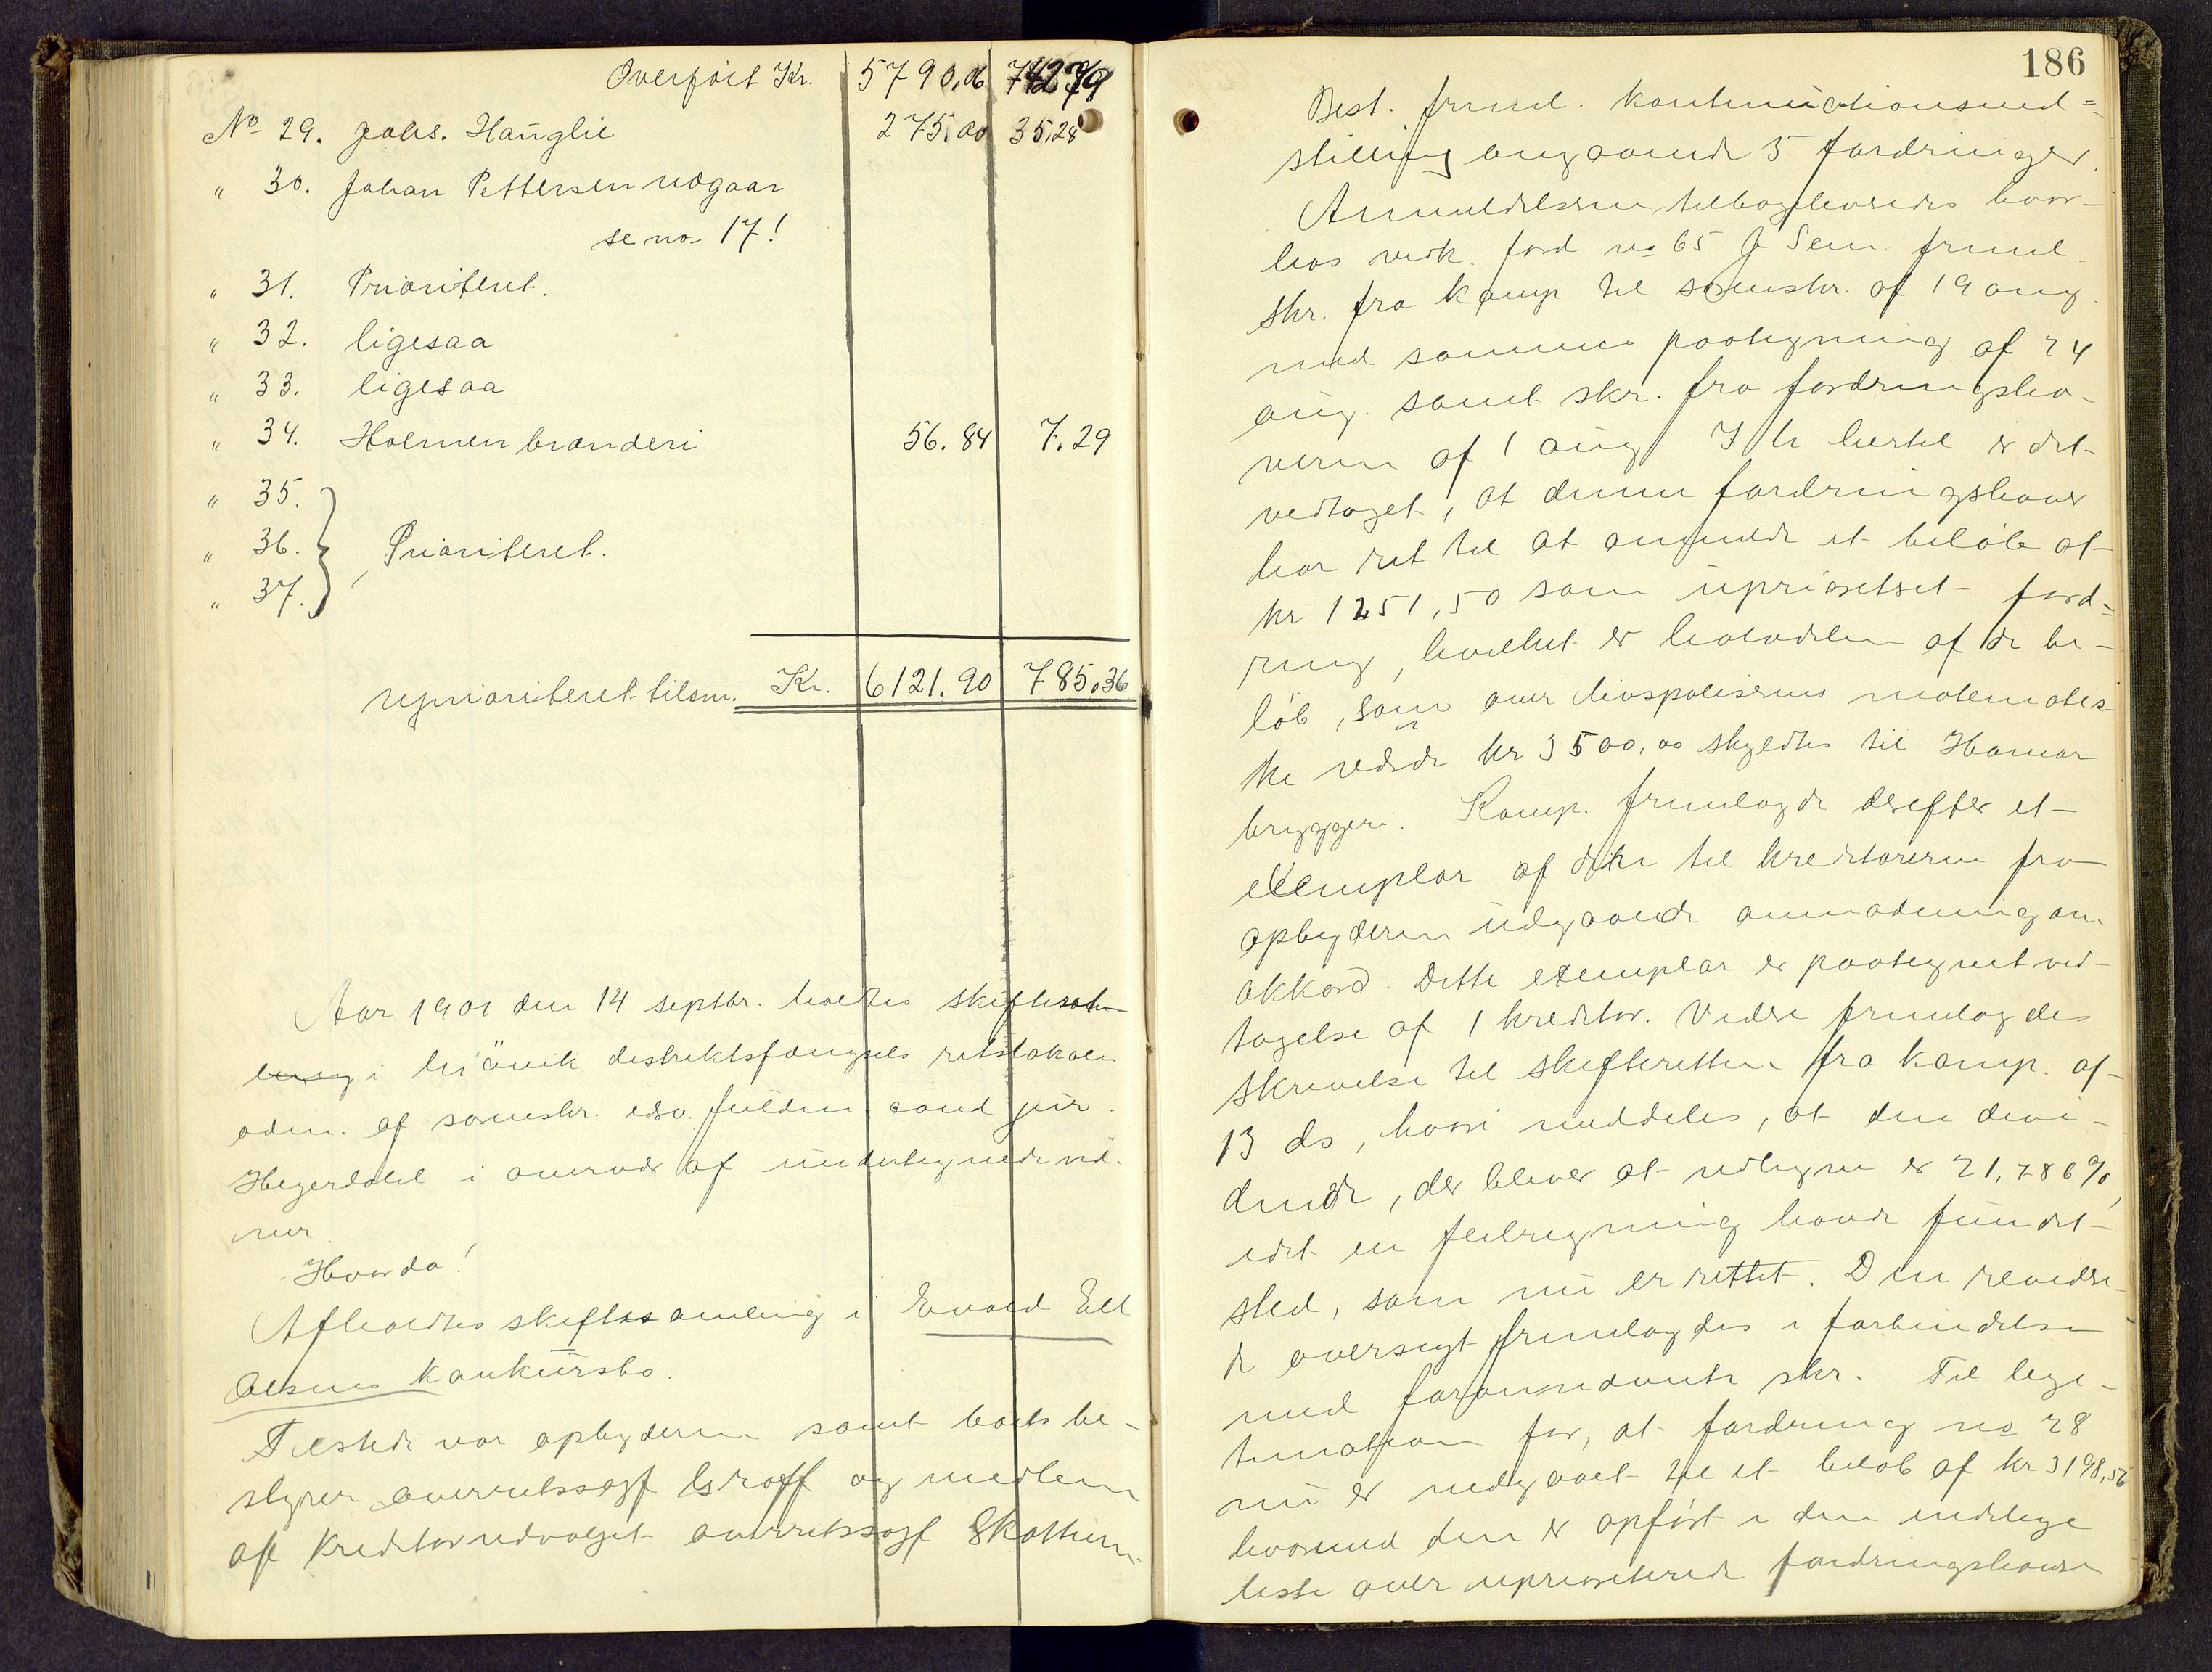 Overført Kr. 5790,06 742,79
No 29. Johs. Hauglie 275.00 35,28
" 30. Johan Pettersen udgaar
se no 17!
" 31. Prioriteret.
" 32. ligesaa
" 33. ligesaa
" 34. Holmen brænderi 56.84 7.29
" 35.
" 36. Prioriteret.
" 37.
Uprioriteret tilsm. Kr. 6121.90 785,36
Aar 1901 den 14 septbr. holdtes skiftesam
ling i Gjövik distriktsfængsels retslokale
adm. af sorenskr. edsv. fuldm. cand jur.
Hegerdahl i overvær af undertegnede vid-
ner.
Hvorda!
Afholdtes skiftesamling i Evald Ell
Olsens konkursbo.
Tilstede var opbyderen samt boets be-
styrer overretssagf Groff og medlem
af Kreditorudvalget overretssagf Skattum.
186
Best. freml. kontinuationsind=
stilling angaaende 5 fordringer.
Anmeldelserne tilbageleveredes bo-
hos vedk. ford no 65 J Sem freml.
skr. fra komp til sorenskr. af 19 aug.
med sammes paategning af 24
aug. samt skr. fra fordringsha-
veren af 1 aug. I h hertil er det
vedtaget, at denne fordringshaver
har ret til at anmelde et beløb at
kr 1251,50 som uprioritet ford=
ring, hvilket er halvdelen af de be-
løb, som over livspolisernes matematis-
ke værdi kr 3500,00 skyldtes til Hamar
bryggeri. Komp. fremlagde derefter et
exemplar af den til kreditorerne fra
opbyderen udgaaende anmodning om
akkord. Dette exemplar er paategnet ved-
tagelse af 1 kreditor. Videre fremlagdes
skrivelse til skifteretten fra komp. af
13 ds, hvori meddeles, at den divi-
dende, der bliver at udligne er 21,786%,
idet en feilregning havde fundet
sted, som nu er rettet. Den revider-
de oversigt fremlagdes i forbindelse
med foranmeldte skr. Til legi-
timation for, at fordring no 28
nu er nedgaaet til et beløb af kr 3198,56
hvormed den er opført i den endelige
liste over uprioriterede fordringshavere